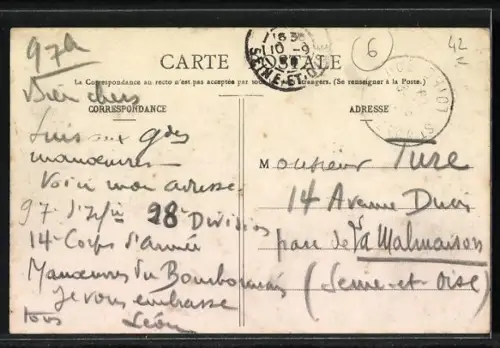 97a
6
42
CARTE POSTALE
La Correspondance au recto n'est pas acceptée par tous les pays étrangers. (Se renseigner à la Poste.)
CORRESPONDANCE
ADRESSE
SEINE-ET-OISE
Bien chers
Suis aux gdes
manœuvres
Voici mon adresse.
97 d'Infie 28 Division
14 Corps d'armée
Manœuvres du Bourbonnais
Je vous embrasse
tous Léon
Monsieur Ture
14 Avenue Ducis
parc de la Malmaison
(Seine-et-Oise)